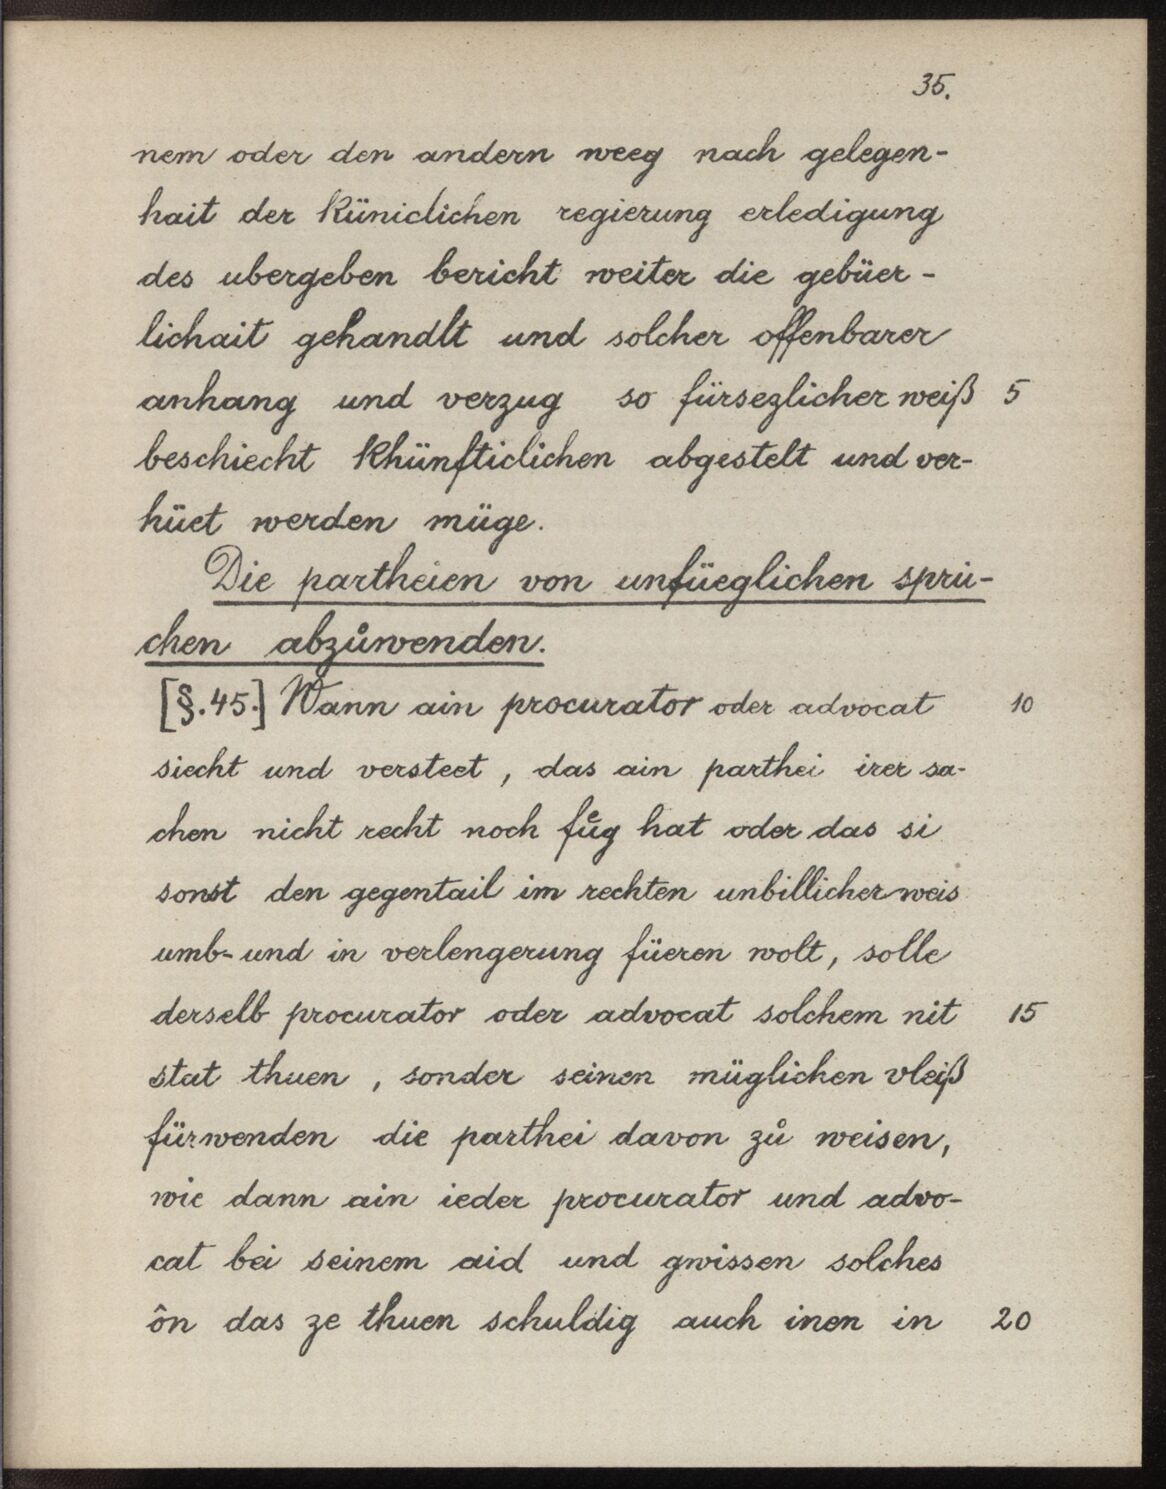 35.
nem oder den andern weeg nach gelegen-
hait der küniclichen regierung erledigung
des ubergeben bericht weiter die gebüer-
lichait gehandlt und solcher offenbarer
anhang und verzug so fürsezlicher weiß 5
beschiecht khünfticlichen abgestelt und ver-
hüet werden müge.
Die partheien von unfüeglichen sprü-
chen abzůwenden.
[§.45.] Wann ain procurator oder advocat 10
siecht und versteet, das ain parthei irer sa-
chen nicht recht noch fůg hat oder das si
sonst den gegentail im rechten unbillicher weis
umb- und in verlengerung füeren wolt, solle
derselb procurator oder advocat solchem nit 15
stat thuen, sonder seinen müglichen vleiß
fürwenden die parthei davon zů weisen,
wie dann ain ieder procurator und advo-
cat bei seinem aid und gwissen solches
ôn das ze thuen schuldig auch inen in 20